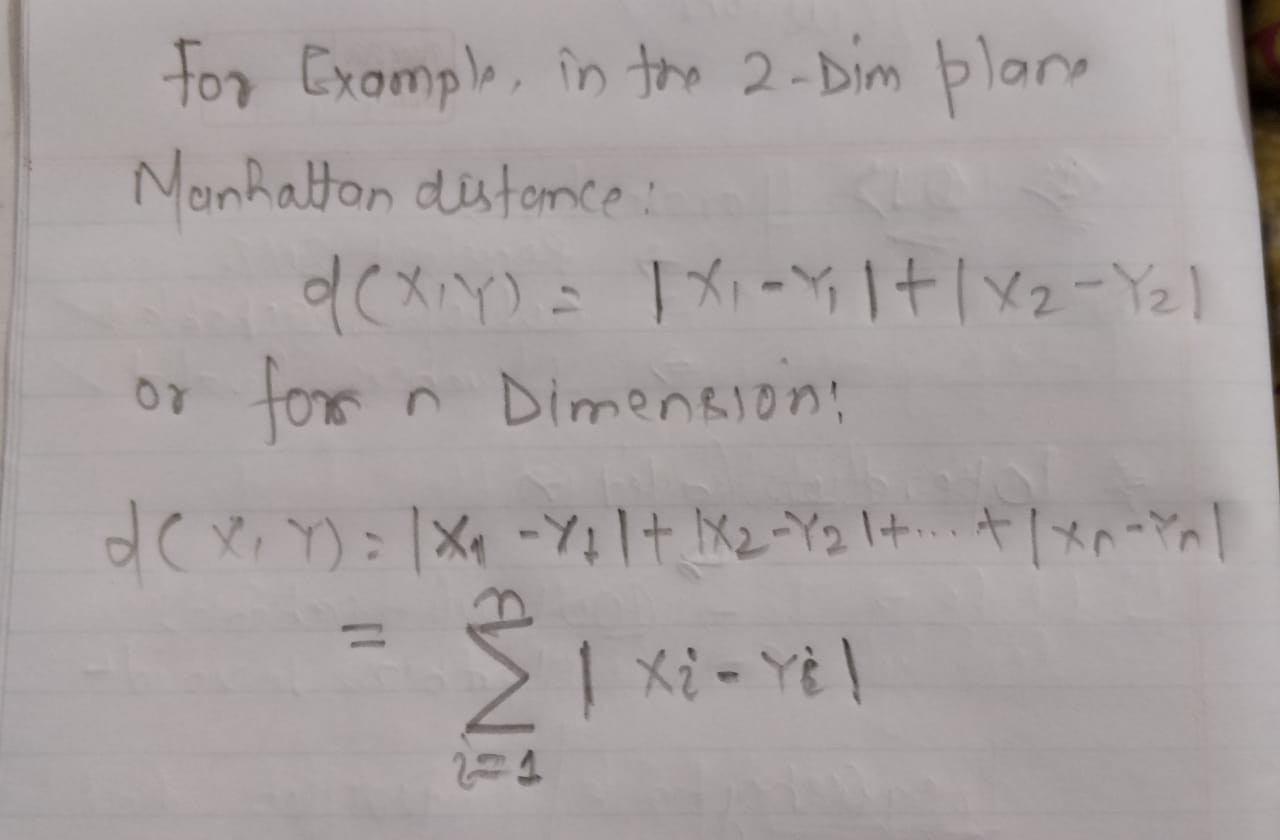 For Example, in the 2-Dim plane
Manhattan distance:
d(X,Y) = |X₁-Y₁|+|X₂-Y₂|
or for n Dimension:
d(X,Y) = |X₁-Y₁|+|X₂-Y₂|+...+|Xn-Yn|
n
= ∑ |Xi-Yi|
i=1